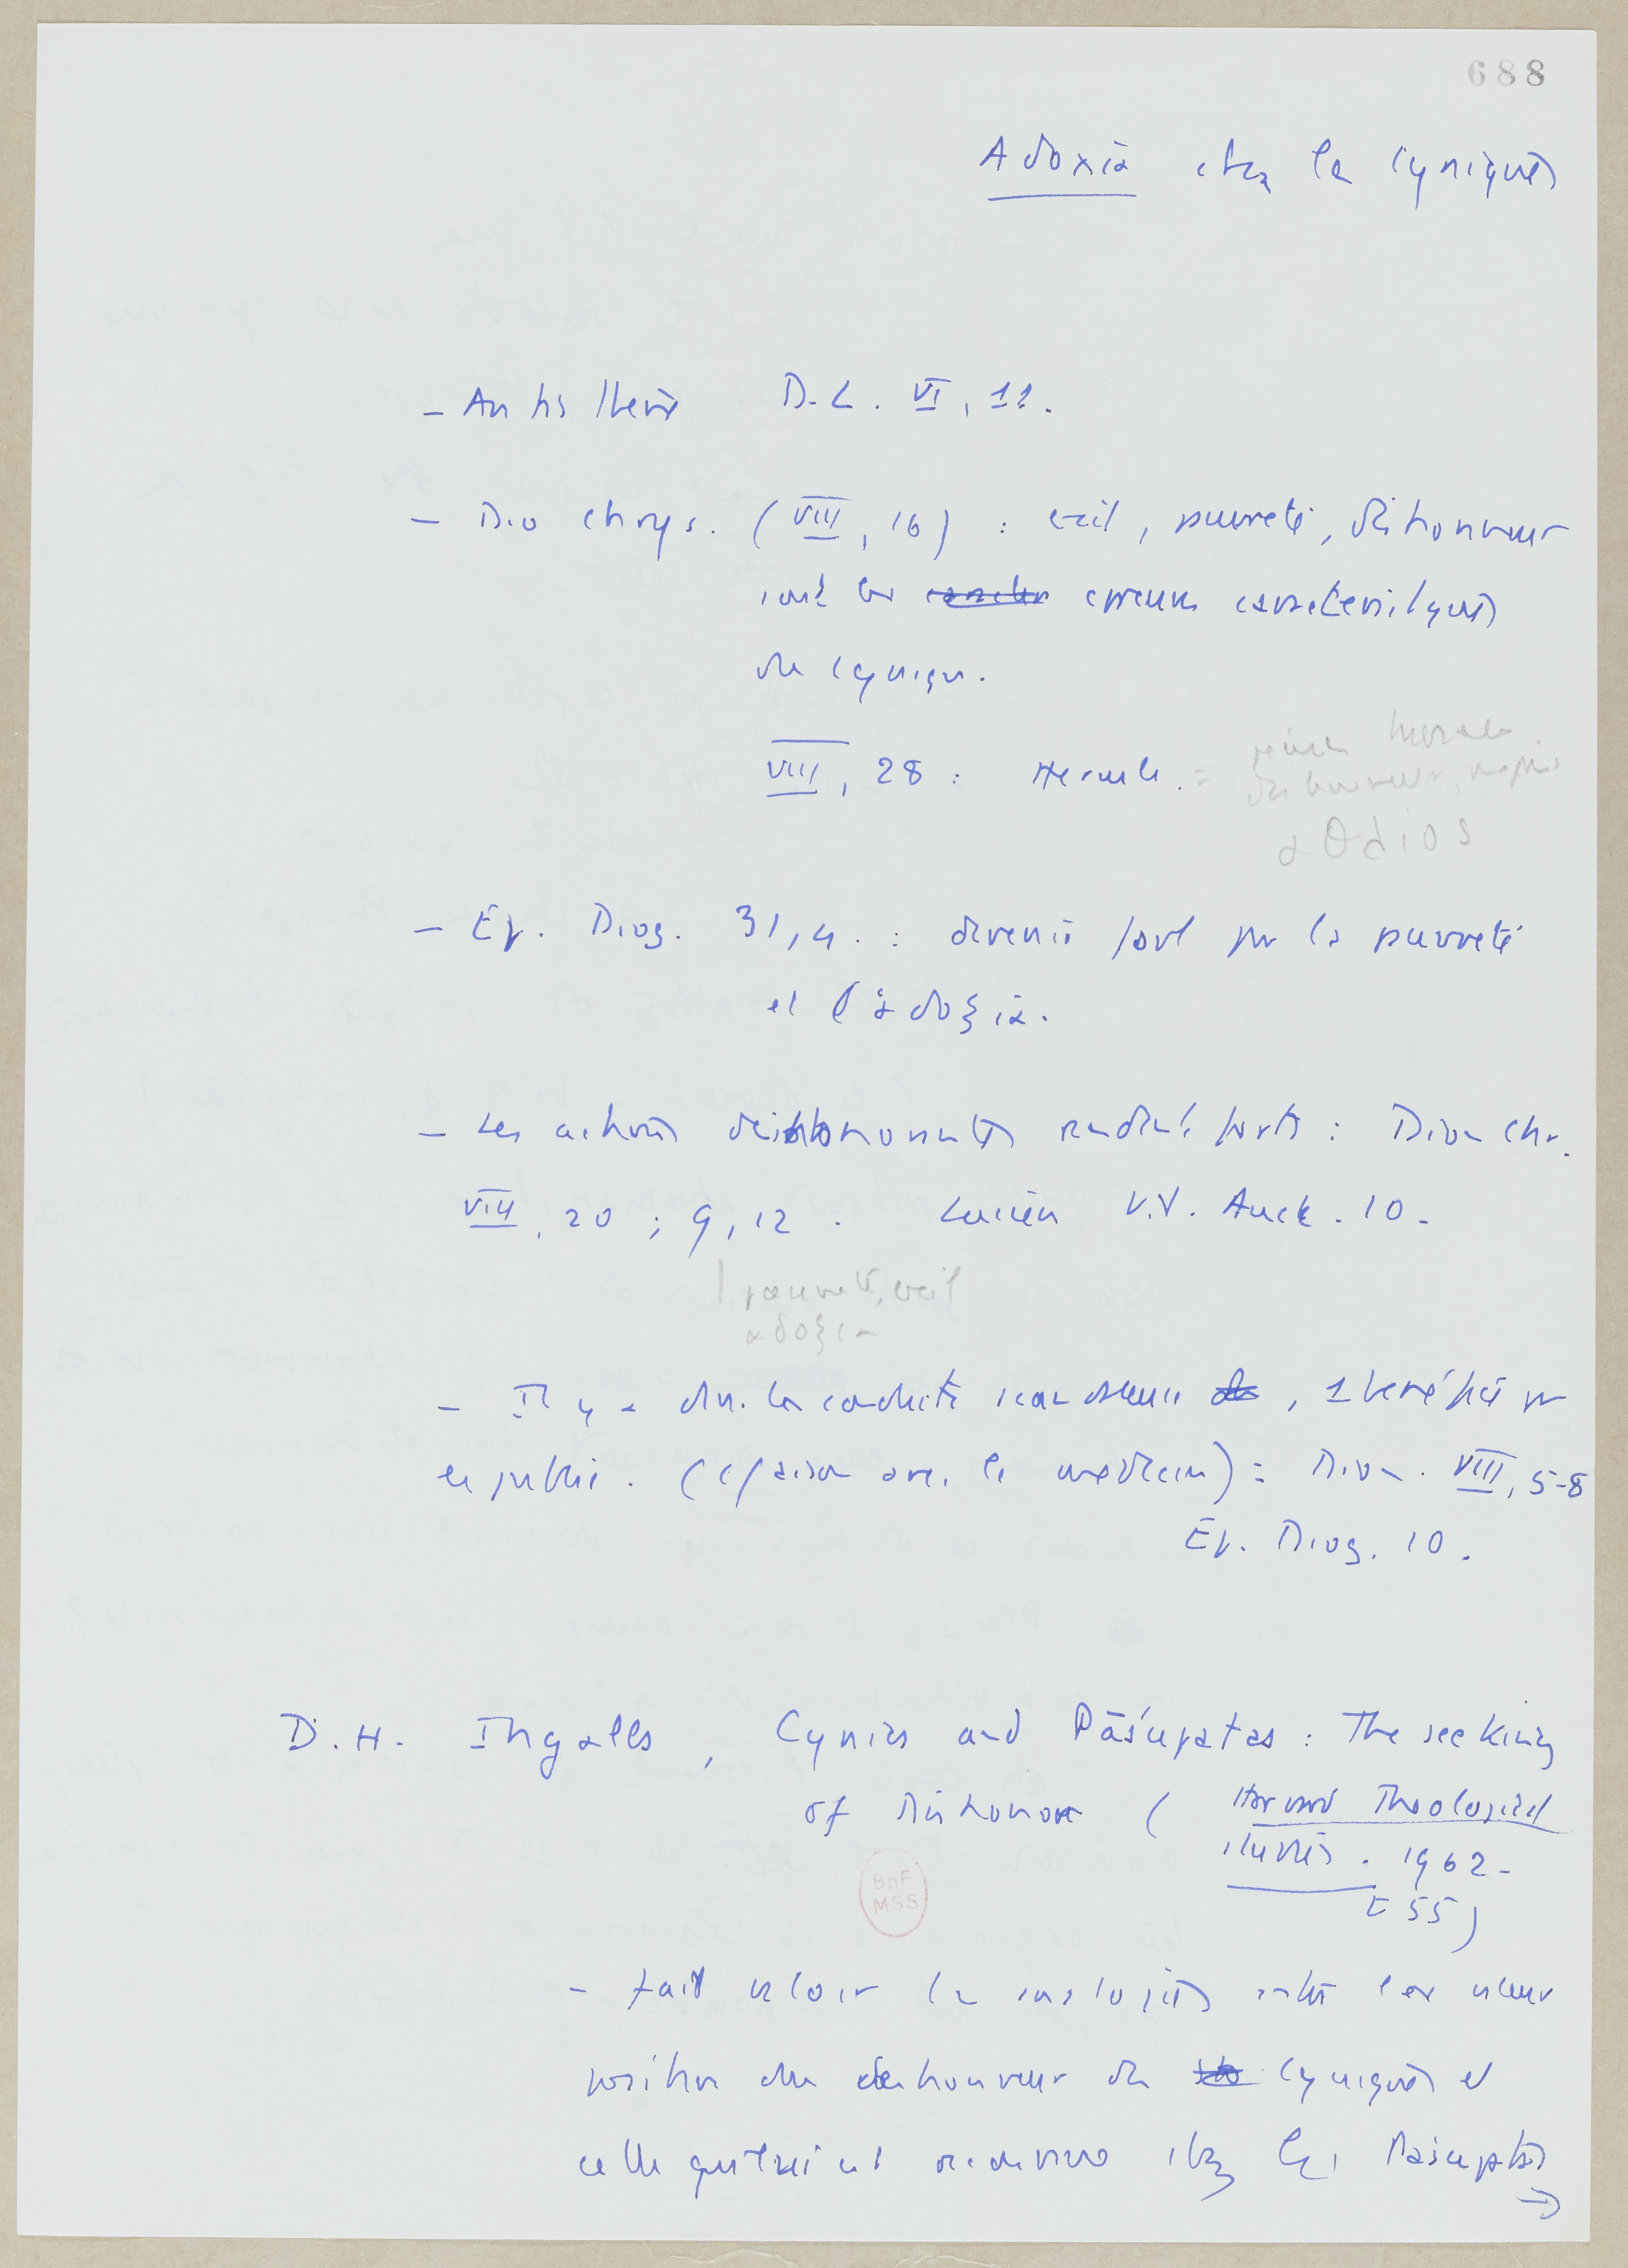 688
Adoxia chez les Cyniques
- Antisthène D.L. VI, 11.
- Dio Chrys. (VIII, 16) : exil, pauvreté, déshonneur
sont les épreuves caractéristiques
du cynique.
VIII, 28 : Hercule. =
déshonneur, mépris
αθλιος
- Ep. Diog. 31,4. : devenir fort par la pauvreté
et l'αδοξια.
- Les actions déshonorantes rendent forts : Dion Chr.
VIII, 20 ; 9, 12. Lucien V.V. Auct. 10.
pauvreté, exil
αδοξια
- Il y a dans la conduite scandaleuse , 1 bénéfice pr
le public. (cpaison avec le médecin) = Dion. VIII, 5-8
Ep. Diog. 10.
D.H. Ingalls, Cynics and Pāśupatas : The seeking
of Dishonor (Harvard Theological
studies. 1962-
t 55)
- fait valoir les analogies entre la valeur
positive du deshonneur des cyniques et
celle qui lui est reconnue chez les Pāśupatas
→
BnF
MSS